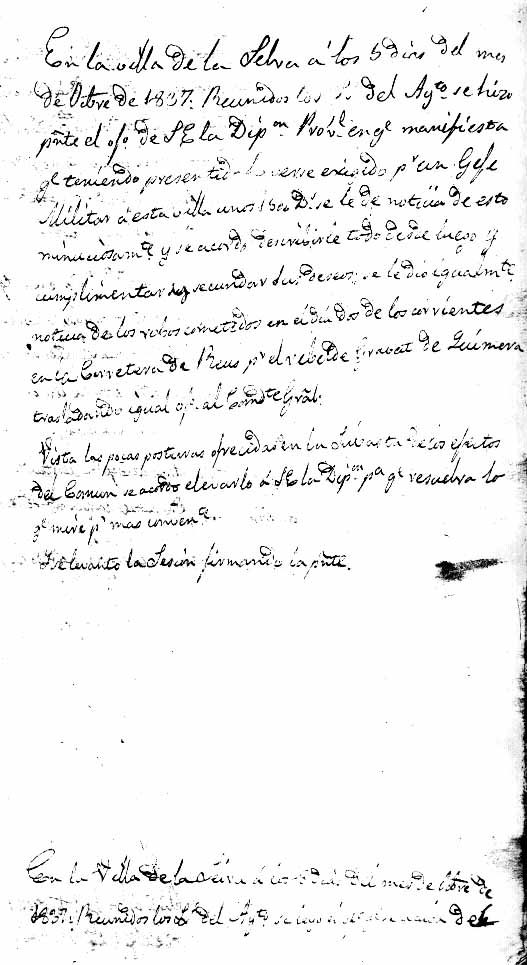 En la villa de la Selva á los 5 dias del mes
de Octre de 1837. Reunidos los Ss. del Ayto. se hizo
pnte el ofo. de S.E. la Dipon. Provl. en qe manifiesta
qe teniendo presentido haverse exigido pr un Gefe
Militar á esta villa unos 1500 Ds. se le de noticia de esto
minuciosamte y se acordó describirle todo desde luego y
cumplimentar y secundar sus deseos; se le dio igualmte
noticia de los robos cometidos en el dia dos de los corrientes
en la Carretera de Reus pr el rebelde Gravat de Guimera
trasladando igual ofo. al Comdte Gral.
Vista las pocas posturas ofrecidas en la Subasta de los efectos
del Comun se acordo elevarlo á S.E. la Dipon. pa qe resuelva lo
qe mire pr mas convente.
Se levantó la Sesion firmando la pnte.
En la Villa de la Selva á los dias del mes de Octre de
1837. Reunidos los Ss. del Ayto. se leyó de